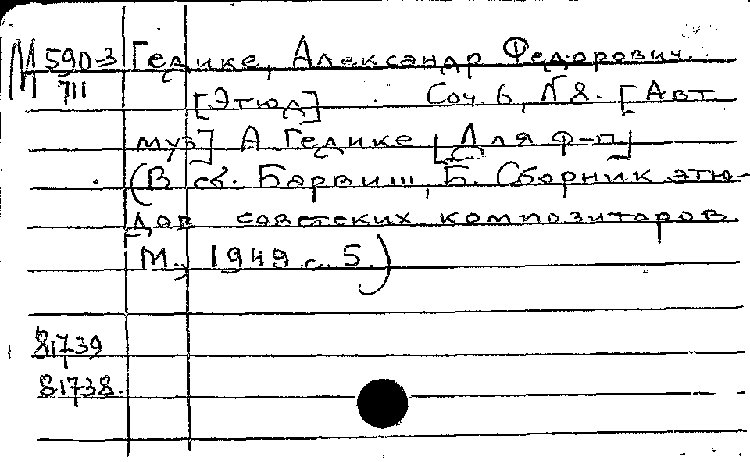 М 590-3 Гедике, Александр Федорович.
711
[Этюд] Соч. 6, №8. [Авт.
муз] А. Гедике [Для ф-п.]
(В сб. Барвиш, Б. Сборник этю-
дов советских композиторов
М., 1949 с. 5.)
81739
81738.